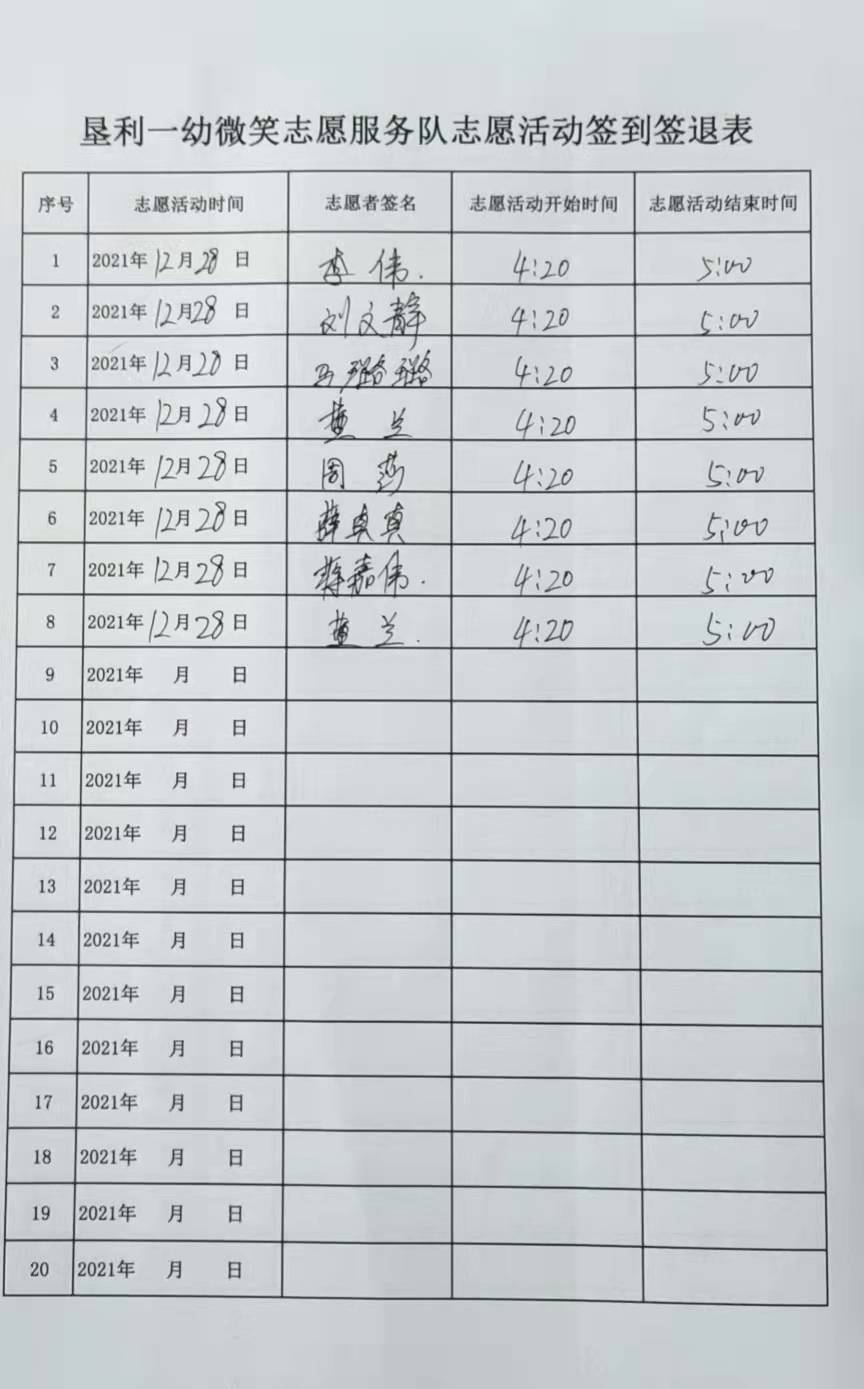 垦利一幼微笑志愿服务队志愿活动签到签退表
序号 志愿活动时间 志愿者签名 志愿活动开始时间 志愿活动结束时间
1 2021年12月28日 李伟. 4:20 5:00
2 2021年12月28日 刘文静 4:20 5:00
3 2021年12月28日 马璐璐 4:20 5:00
4 2021年12月28日 黄兰 4:20 5:00
5 2021年12月28日 周 4:20 5:00
6 2021年12月28日 薛真真 4:20 5:00
7 2021年12月28日 蒋嘉伟. 4:20 5:00
8 2021年12月28日 黄兰. 4:20 5:00
9 2021年 月 日
10 2021年 月 日
11 2021年 月 日
12 2021年 月 日
13 2021年 月 日
14 2021年 月 日
15 2021年 月 日
16 2021年 月 日
17 2021年 月 日
18 2021年 月 日
19 2021年 月 日
20 2021年 月 日